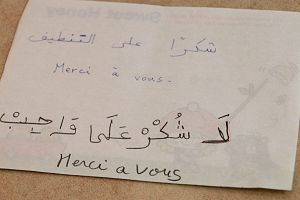 Sweet Honey
شكرًا على التنظيف
Merci à vous.
لَا شُكْرْ عَلَى وَاجِبْ
Merci a vous